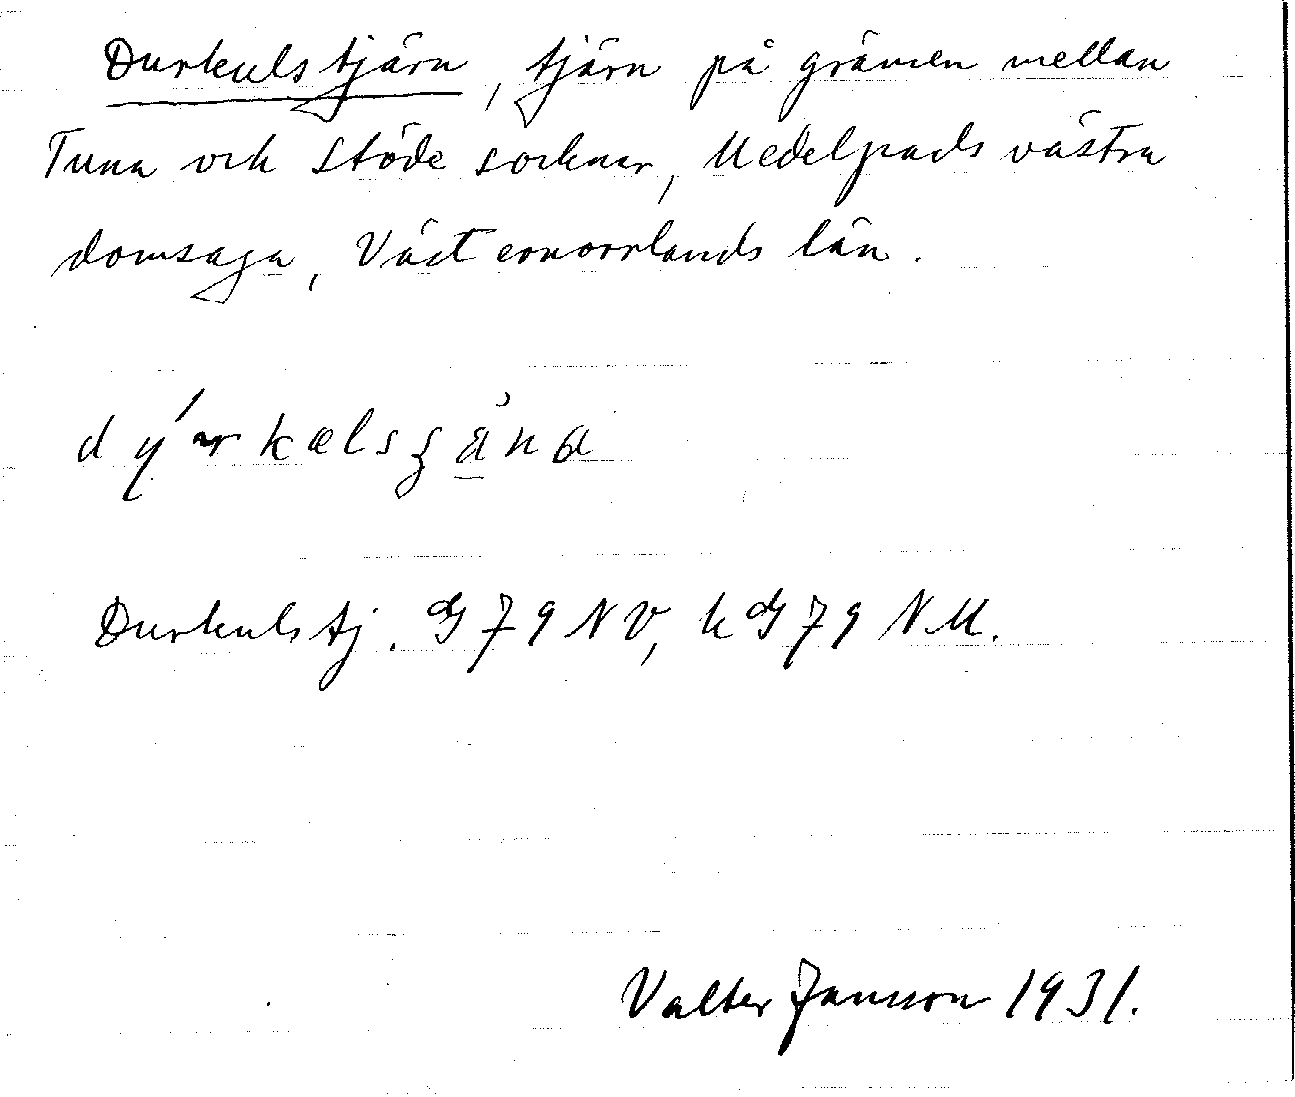 Durkulstjärn, tjärn på gränsen mellan
Tuna och Stöde socknar, Medelpads västra
domsaga, Västernorrlands län.
Durkulstj. 79 NV, k 79 NM.
Valter Jansson 1931.